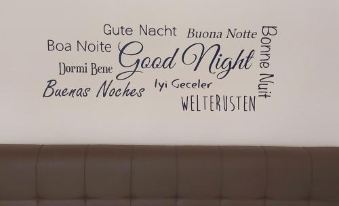 Gute Nacht
Buona Notte
Boa Noite
Good Night
Bonne Nuit
Dormi Bene
Iyi Geceler
Buenas Noches
WELTERUSTEN